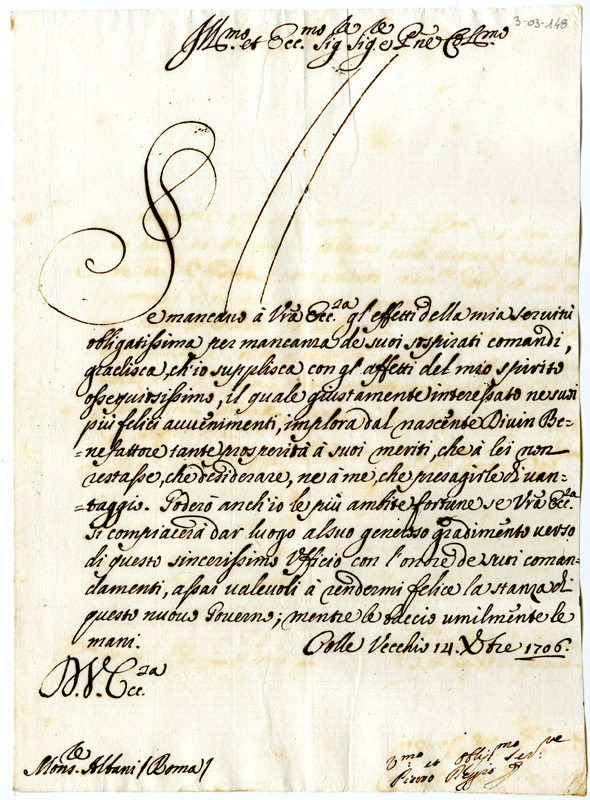 3-03-148
Ill.mo et Ecc.mo Sig.re Sig.re e P.ne Col.mo
Se mancano à Vrã Ecc.za gl'effetti della mia servitù
obligatissima per mancanza de suoi sospirati comandi,
gradisca, ch'io supplisca con gl'affetti del mio spirito
ossequiosissimo, il quale giustamente interessato ne suoi
più felici avvenimenti, implora dal nascente Divin Be=
=nefattore tante prosperità à suoi meriti, che à lei non
restasse, che desiderare, ne à me, che presagirle di van=
=taggio. Goderò anch'io le più ambite fortune se Vrã Ecc.za
si compiacerà dar luogo al suo generoso gradimento verso
di questo sincerissimo Ufficio con l'onore de suoi coman=
damenti, assai valevoli à rendermi felice la stanza di
questo nuovo Governo; mentre le baccio umilmẽte le
mani. Colle Vecchio 14. Xbre 1706.
D. V. Ecc.za
Mons.re Albani (Roma)
D.mo et Obblig.mo Ser.re
Piero